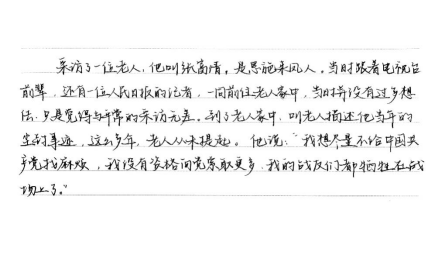 采访了一位老人，他叫张富清，是恩施来凤人。当时跟着电视台
前辈，还有一位人民日报的记者，一同前往老人家中，当时并没有过多想
法，只是觉得与平常的采访无差。到了老人家中，叫老人描述他当年的
生前事迹，这么多年，老人从未提起。他说：“我想尽量不给中国共
产党找麻烦，我没有资格向党索取更多，我的战友们都牺牲在战
场上了。”